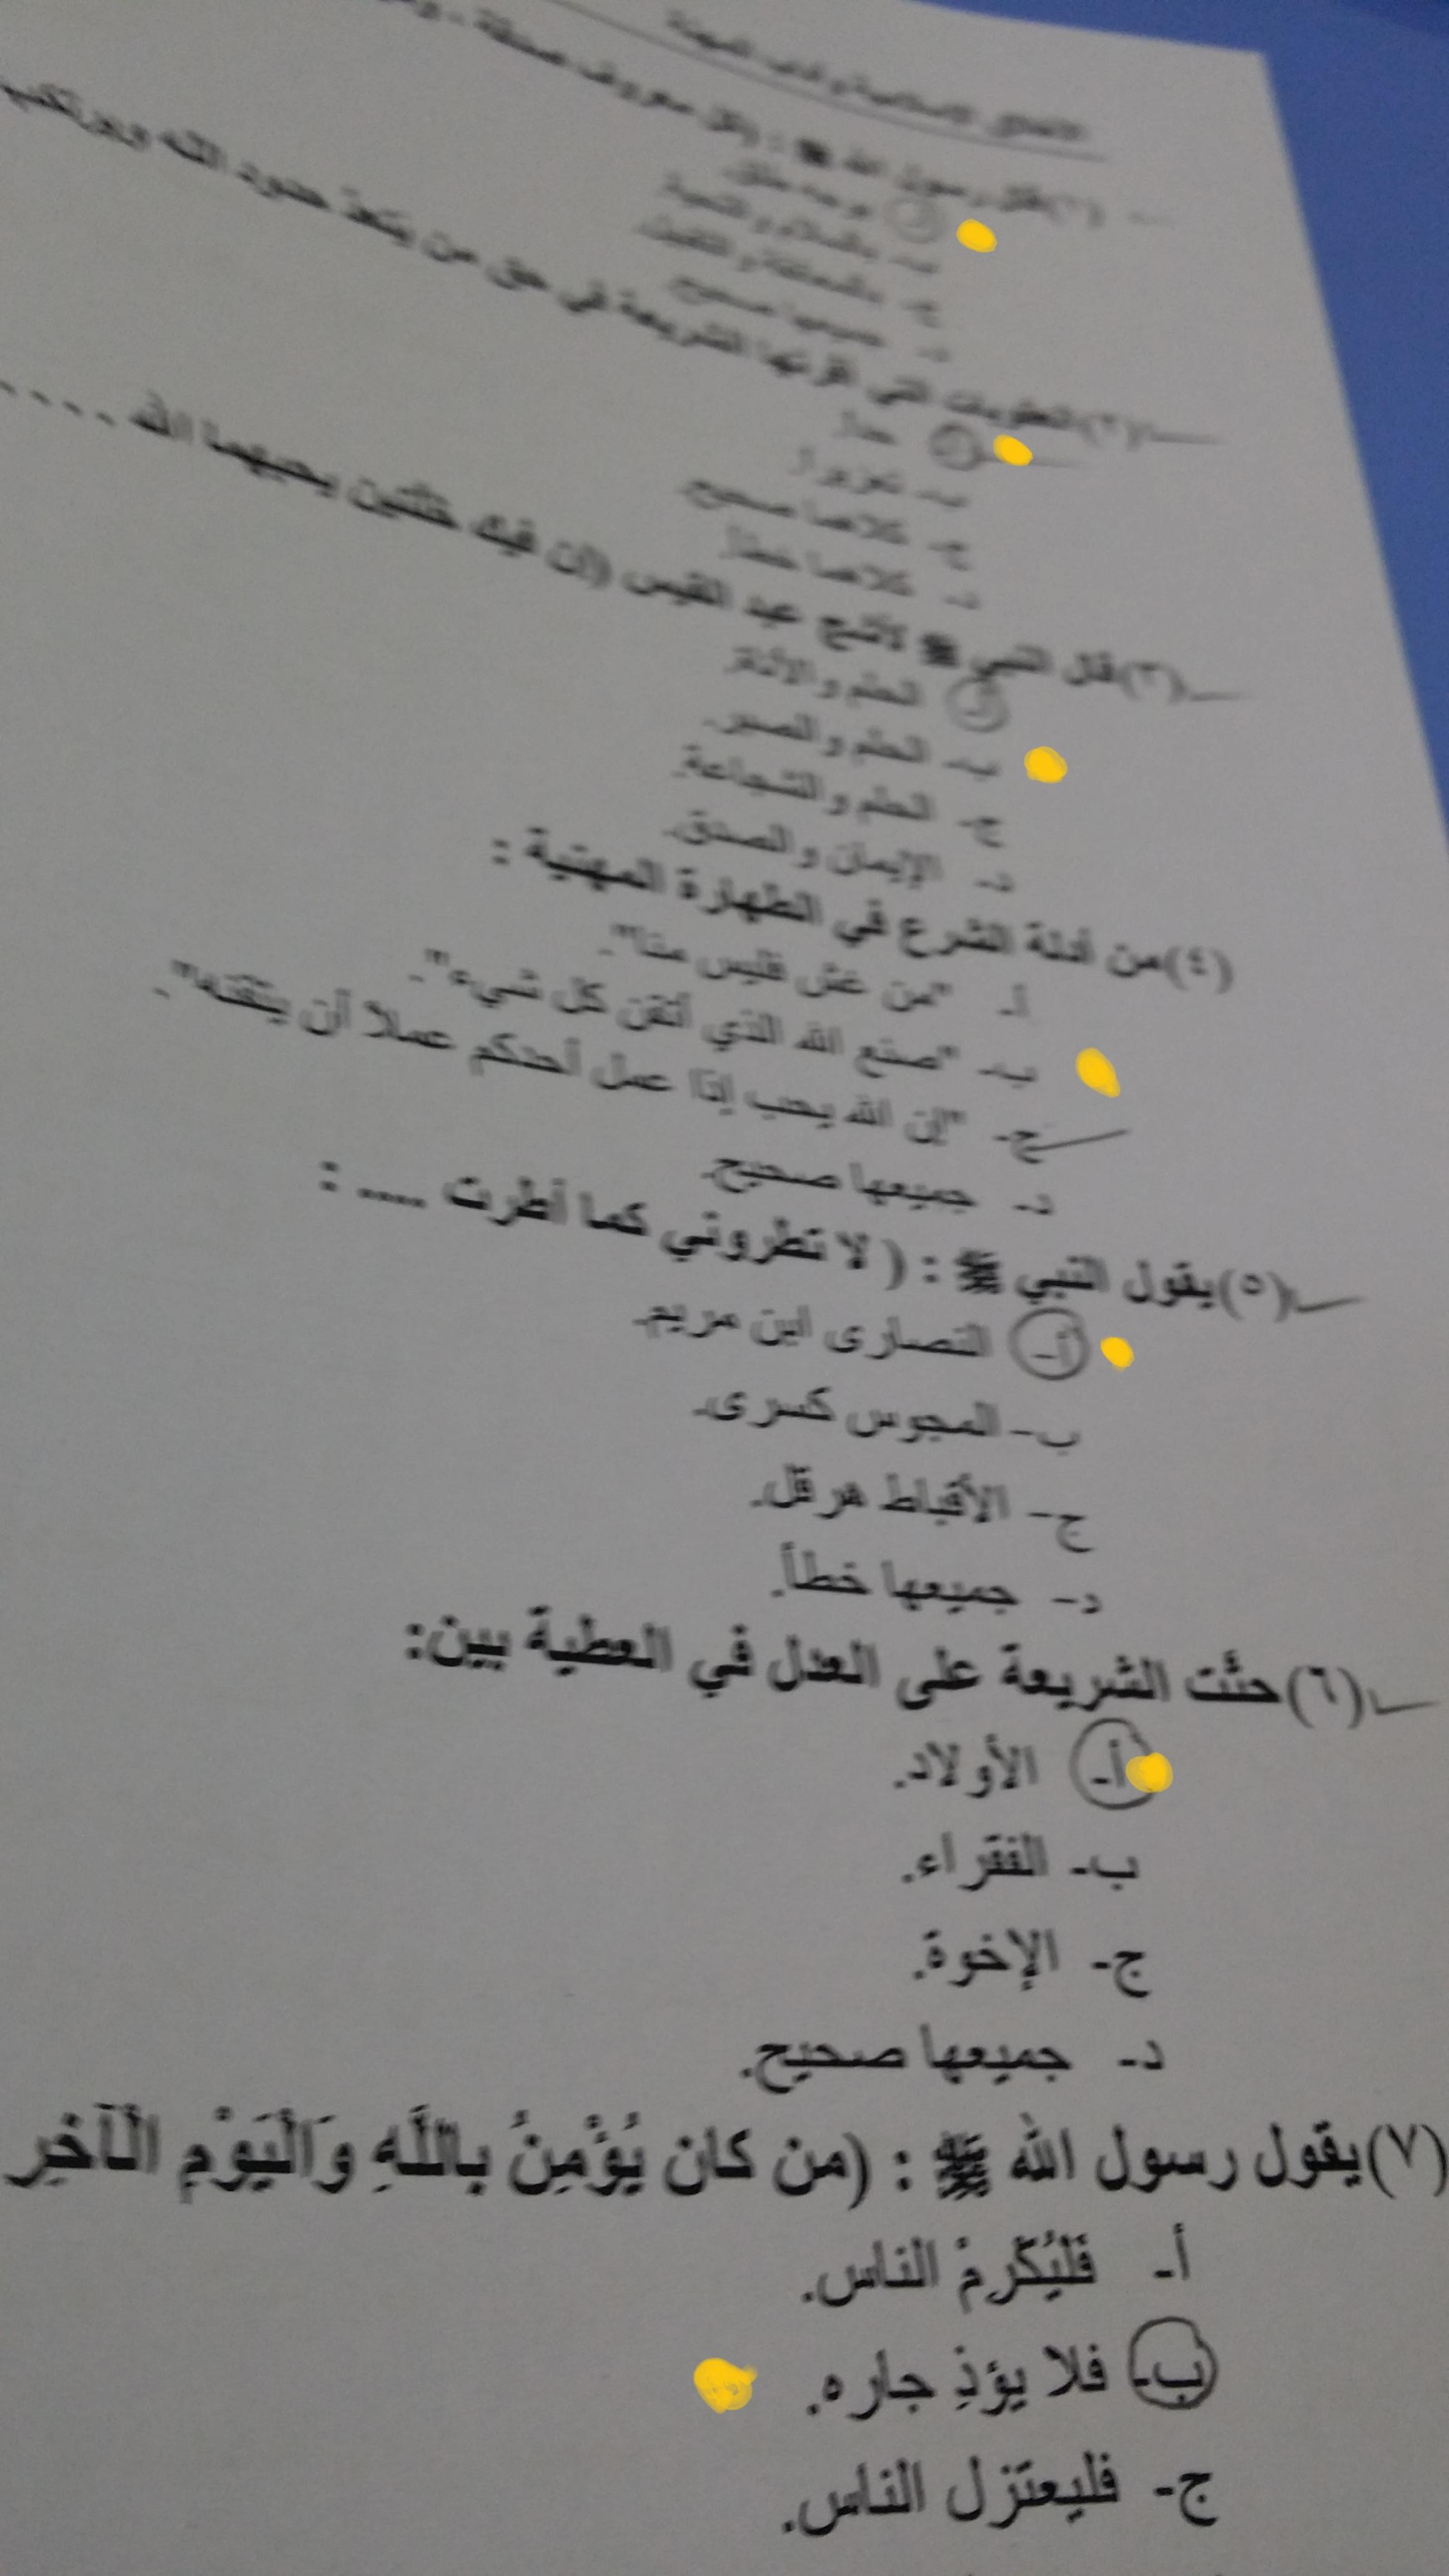 الأخلاق الإسلامية وآداب المهنة
(١) قال رسول الله ﷺ : (كل معروف صدقة
أ- بوجه طلق.
ب- بالسلام والتحية.
ج-
د- جميعها صحيح.
(٢) العقوبات التي أقرتها الشريعة في حق من يتعدّ حدود الله ويرتكب
أ- حداً.
ب- تعزيراً.
ج- كلاهما صحيح.
د- كلاهما خطأ.
(٣) قال النبي ﷺ لأشج عبد القيس (إن فيك خلتين يحبهما الله . . . .
أ- الحلم والأناة.
ب- الحلم والصبر.
ج- الحلم والشجاعة.
د- الإيمان والصدق.
(٤) من أدلة الشرع في الطهارة المهنية :
أ- "من غش فليس منا".
ب- "صنع الله الذي أتقن كل شيء".
ج- "إن الله يحب إذا عمل أحدكم عملا أن يتقنه".
د- جميعها صحيح.
(٥) يقول النبي ﷺ : ( لا تطروني كما أطرت .... :
أ- النصارى ابن مريم.
ب- المجوس كسرى.
ج- الأقباط هرقل.
د- جميعها خطأ.
(٦) حثت الشريعة على العدل في العطية بين:
أ- الأولاد.
ب- الفقراء.
ج- الإخوة.
د- جميعها صحيح.
(٧) يقول رسول الله ﷺ : (من كان يُؤْمِنُ بِاللَّهِ وَالْيَوْمِ الْآخِرِ
أ- فَلْيُكْرِمْ الناس.
ب- فلا يؤذِ جاره.
ج- فليعتزل الناس.